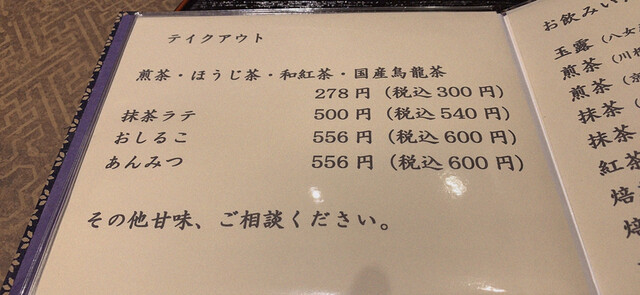 テイクアウト
煎茶・ほうじ茶・和紅茶・国産烏龍茶
278円（税込300円）
抹茶ラテ 500円（税込540円）
おしるこ 556円（税込600円）
あんみつ 556円（税込600円）
その他甘味、ご相談ください。
お飲みい
玉露（八女
煎茶（川根
煎茶（
抹茶（
抹茶（
紅茶
焙
焙